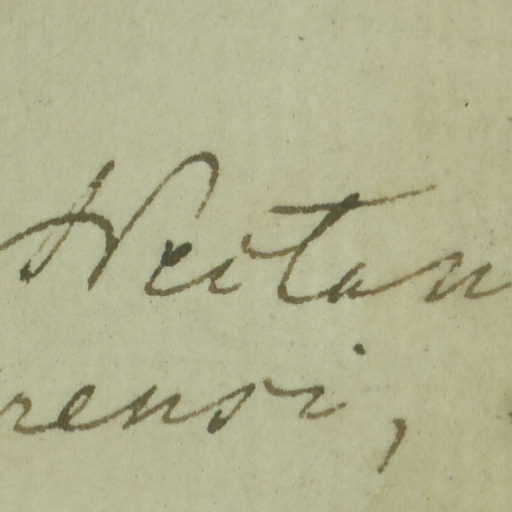 Nestan
rensi,